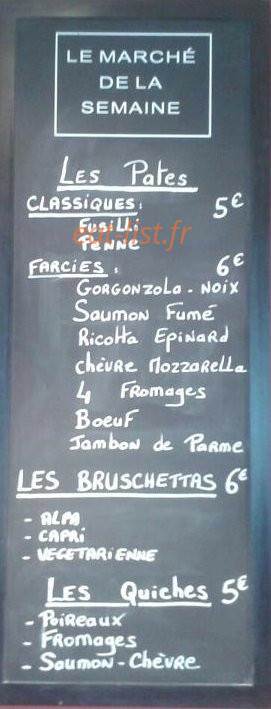 LE MARCHÉ
DE LA
SEMAINE
Les Pates
CLASSIQUES: 5€
Fusilli
eat-list.fr
Penne
FARCIES: 6€
GORGONZOLA - NOIX
Saumon Fumé
Ricotta Epinard
chèvre Mozzarella
4 Fromages
Boeuf
Jambon de Parme
LES BRUSCHETTAS 6€
- ALPA
- CAPRi
- VEGETARiENNE
Les Quiches 5€
- Poireaux
- Fromages
- Saumon - Chèvre